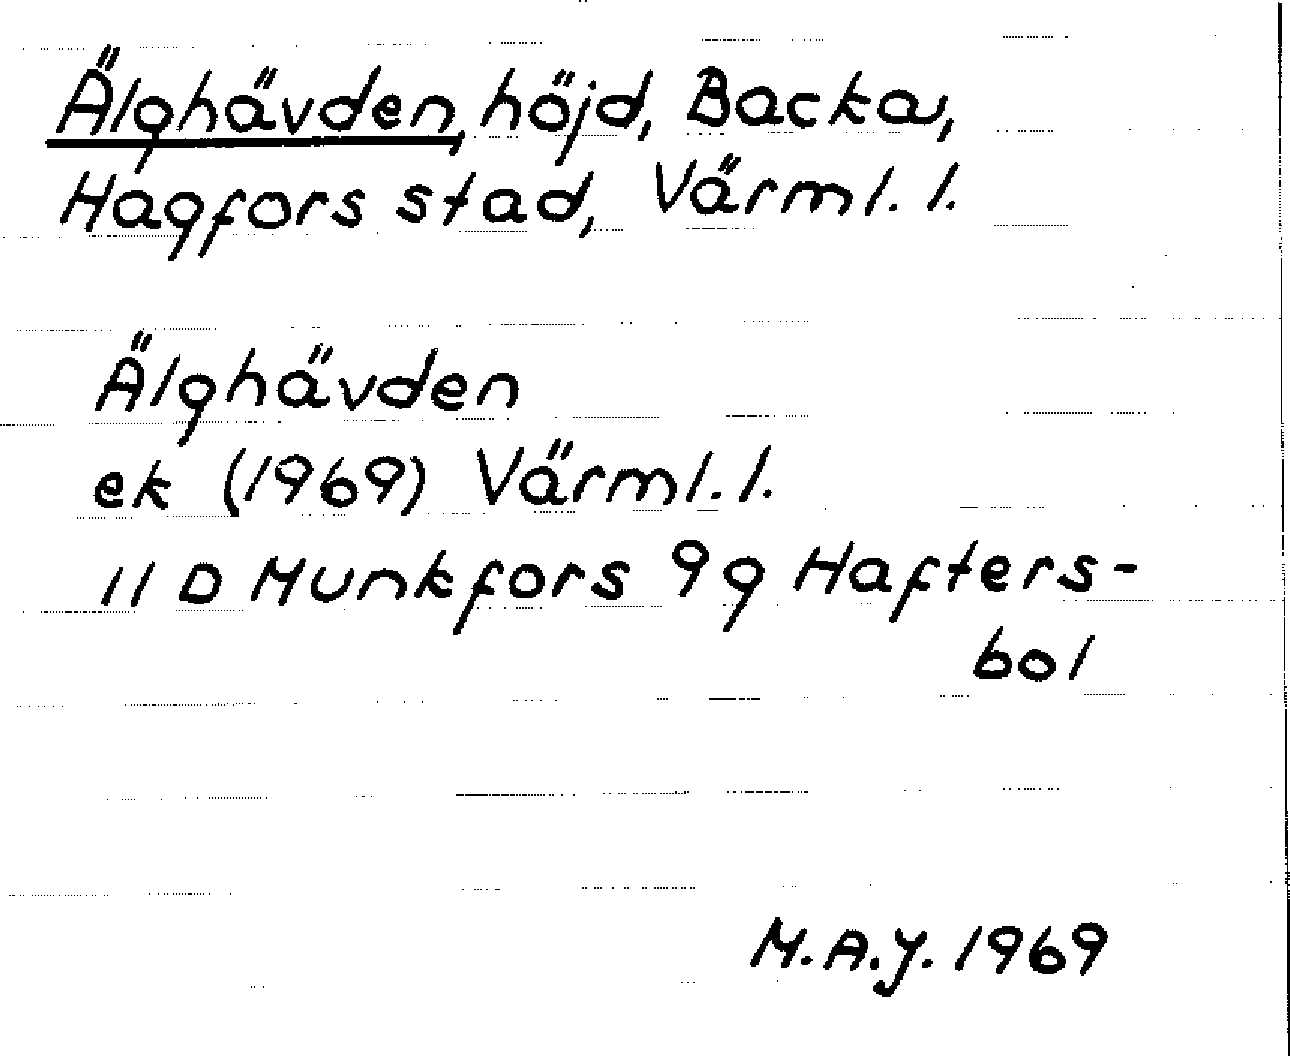 Älghävden, höjd, Backa,
Hagfors stad, Värml. l.
Älghävden
ek (1969) Värml. l.
11 D Munkfors 9g Hafters-
bol
M.A.J. 1969